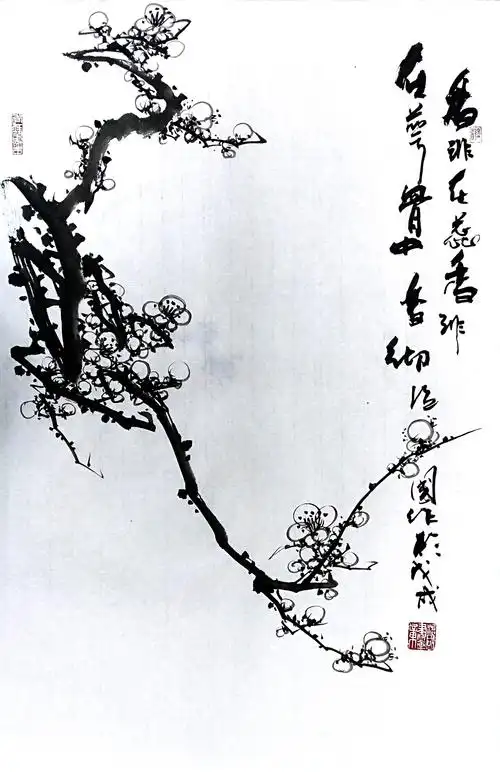 香非在蕊香非
在萼骨中香彻
國作於戊戌